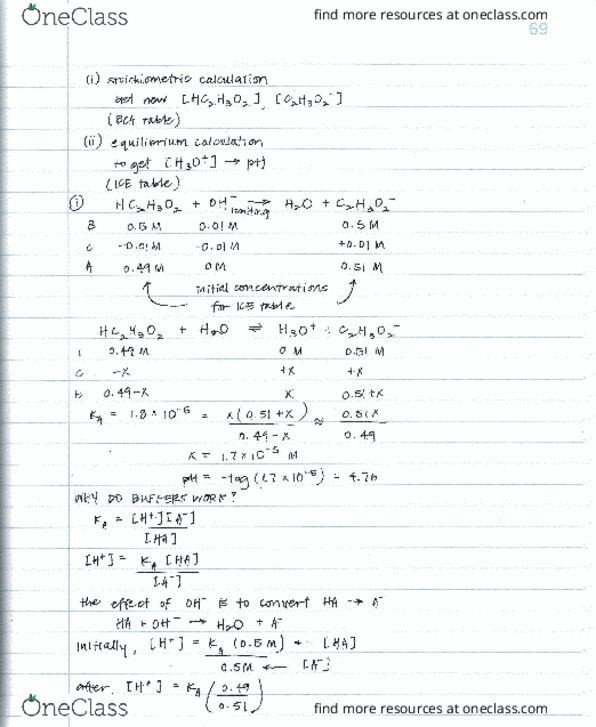 OneClass
find more resources at oneclass.com
69
(i) stoichiometric calculation
get new [HC₂H₃O₂], [C₂H₃O₂⁻]
(BCA table)
(ii) equilibrium calculation
to get [H₃O⁺] → pH
(ICE table)
① HC₂H₃O₂ + OH⁻ → H₂O + C₂H₃O₂⁻
limiting
B 0.5 M 0.01 M 0.5 M
C -0.01 M -0.01 M +0.01 M
A 0.49 M 0 M 0.51 M
initial concentrations
for ICE table
HC₂H₃O₂ + H₂O ⇌ H₃O⁺ + C₂H₃O₂⁻
I 0.49 M 0 M 0.51 M
C -x +x +x
E 0.49-x x 0.51+x
Kₐ = 1.8 × 10⁻⁵ = x(0.51+x) ≈ 0.51x
0.49-x 0.49
x = 1.7 × 10⁻⁵ M
pH = -log(1.7 × 10⁻⁵) = 4.76
WHY DO BUFFERS WORK?
Kₐ = [H⁺][A⁻]
[HA]
[H⁺] = Kₐ [HA]
[A⁻]
the effect of OH⁻ is to convert HA → A⁻
HA + OH⁻ → H₂O + A⁻
initially, [H⁺] = Kₐ (0.5 M) ← [HA]
0.5M ← [A⁻]
after, [H⁺] = Kₐ (0.49
0.51)
OneClass
find more resources at oneclass.com